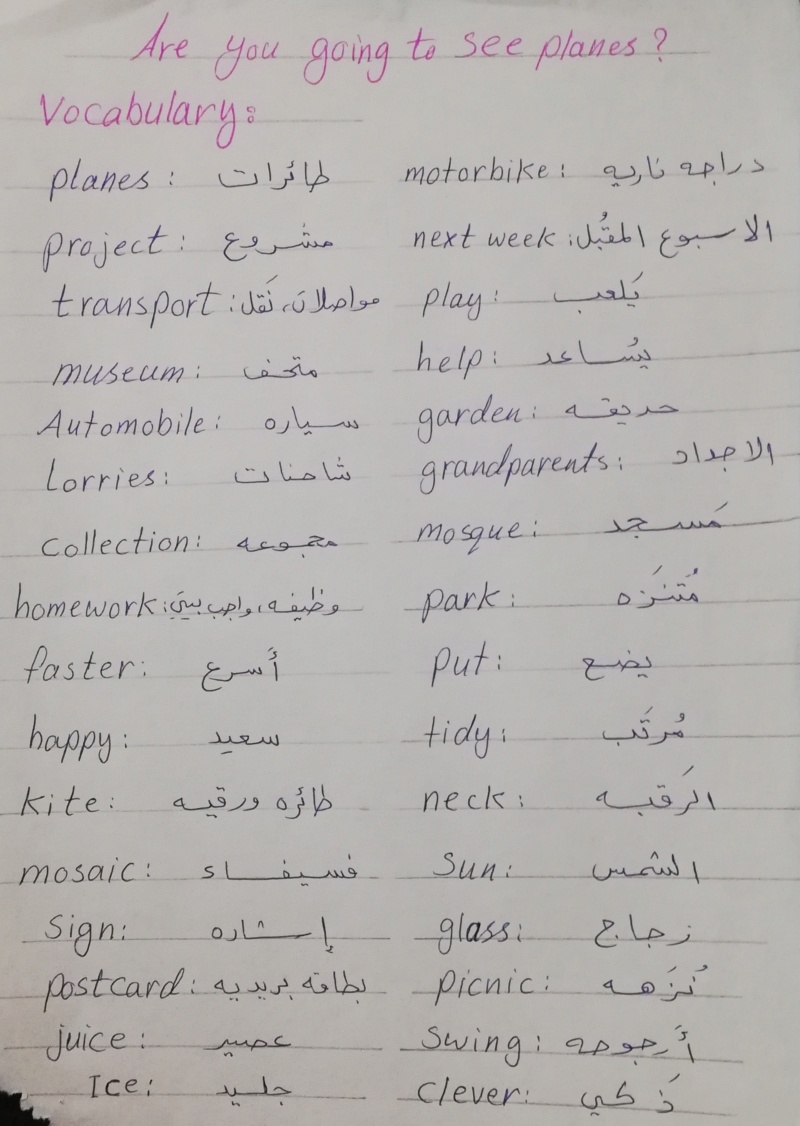 Are you going to see planes?
Vocabulary:
planes: طائرات motorbike: دراجه ناريه
project: مشروع next week: الاسبوع المقُبل
transport: مواصلات، نَقل play: يَلعب
museum: متحف help: يسُاعد
Automobile: سياره garden: حديقه
Lorries: شاحنات grandparents: الاجداد
collection: مجموعه mosque: مَسجد
homework: وظيفه، واجب بيتي park: مُتنَزَه
faster: أسرع put: يضع
happy: سعيد tidy: مُرتَب
kite: طائره ورقيه neck: الرَقبه
mosaic: فسيفساء Sun: الشمس
Sign: إشاره glass: زجاج
postcard: بطاقه بريديه picnic: نُزَهه
juice: عصير Swing: أَرجوحه
Ice: جليد Clever: ذَكي